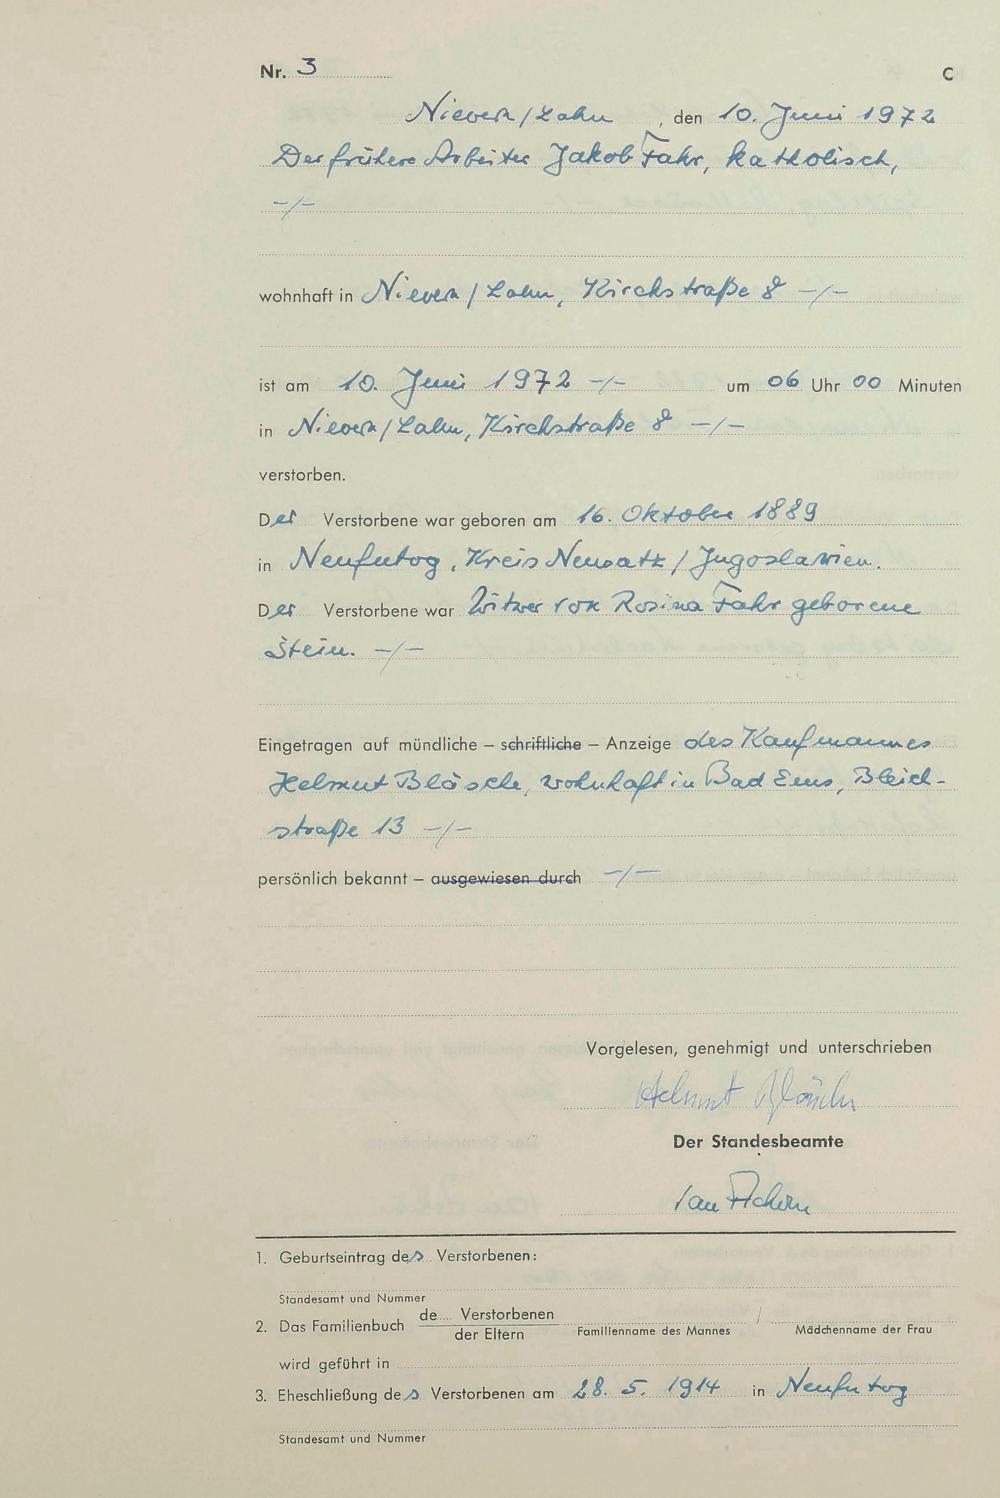 Nr. 3 C
Nievern/Lahn, den 10. Juni 1972
Der frühere Arbeiter Jakob Fahr, katholisch,
-/-
wohnhaft in Nievern/Lahn, Kirchstraße 8 -/-
ist am 10. Juni 1972 -/- um 06 Uhr 00 Minuten
in Nievern/Lahn, Kirchstraße 8 -/-
verstorben.
Der Verstorbene war geboren am 16. Oktober 1889
in Neufutog, Kreis Neusatz/Jugoslawien.
Der Verstorbene war Witwer von Rosina Fahr geborene
Stein. -/-
Eingetragen auf mündliche – schriftliche – Anzeige des Kaufmannes
Helmut Bläsche, wohnhaft in Bad Ems, Bleich-
straße 13 -/-
persönlich bekannt – ausgewiesen durch -/-
Vorgelesen, genehmigt und unterschrieben
Helmut Bläsche
Der Standesbeamte
1. Geburtseintrag des Verstorbenen:
Standesamt und Nummer
2. Das Familienbuch de.... Verstorbenen
der Eltern Familienname des Mannes / Mädchenname der Frau
wird geführt in
3. Eheschließung des Verstorbenen am 28. 5. 1914 in Neufutog
Standesamt und Nummer